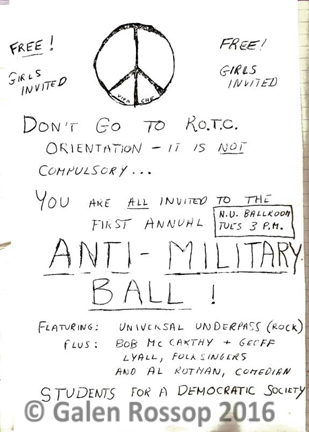 FREE!
GIRLS
INVITED
FREE!
GIRLS
INVITED
DON'T GO TO R.O.T.C.
ORIENTATION - IT IS NOT
COMPULSORY...
YOU ARE ALL INVITED TO THE
FIRST ANNUAL
N.U. BALLROOM
TUES 3 P.M.
ANTI-MILITARY
BALL!
FEATURING: UNIVERSAL UNDERPASS (ROCK)
PLUS: BOB MCCARTHY + GEOFF
LYALL, FOLKSINGERS
AND AL RUTMAN, COMEDIEN
STUDENTS FOR A DEMOCRATIC SOCIETY
© Galen Rossop 2016